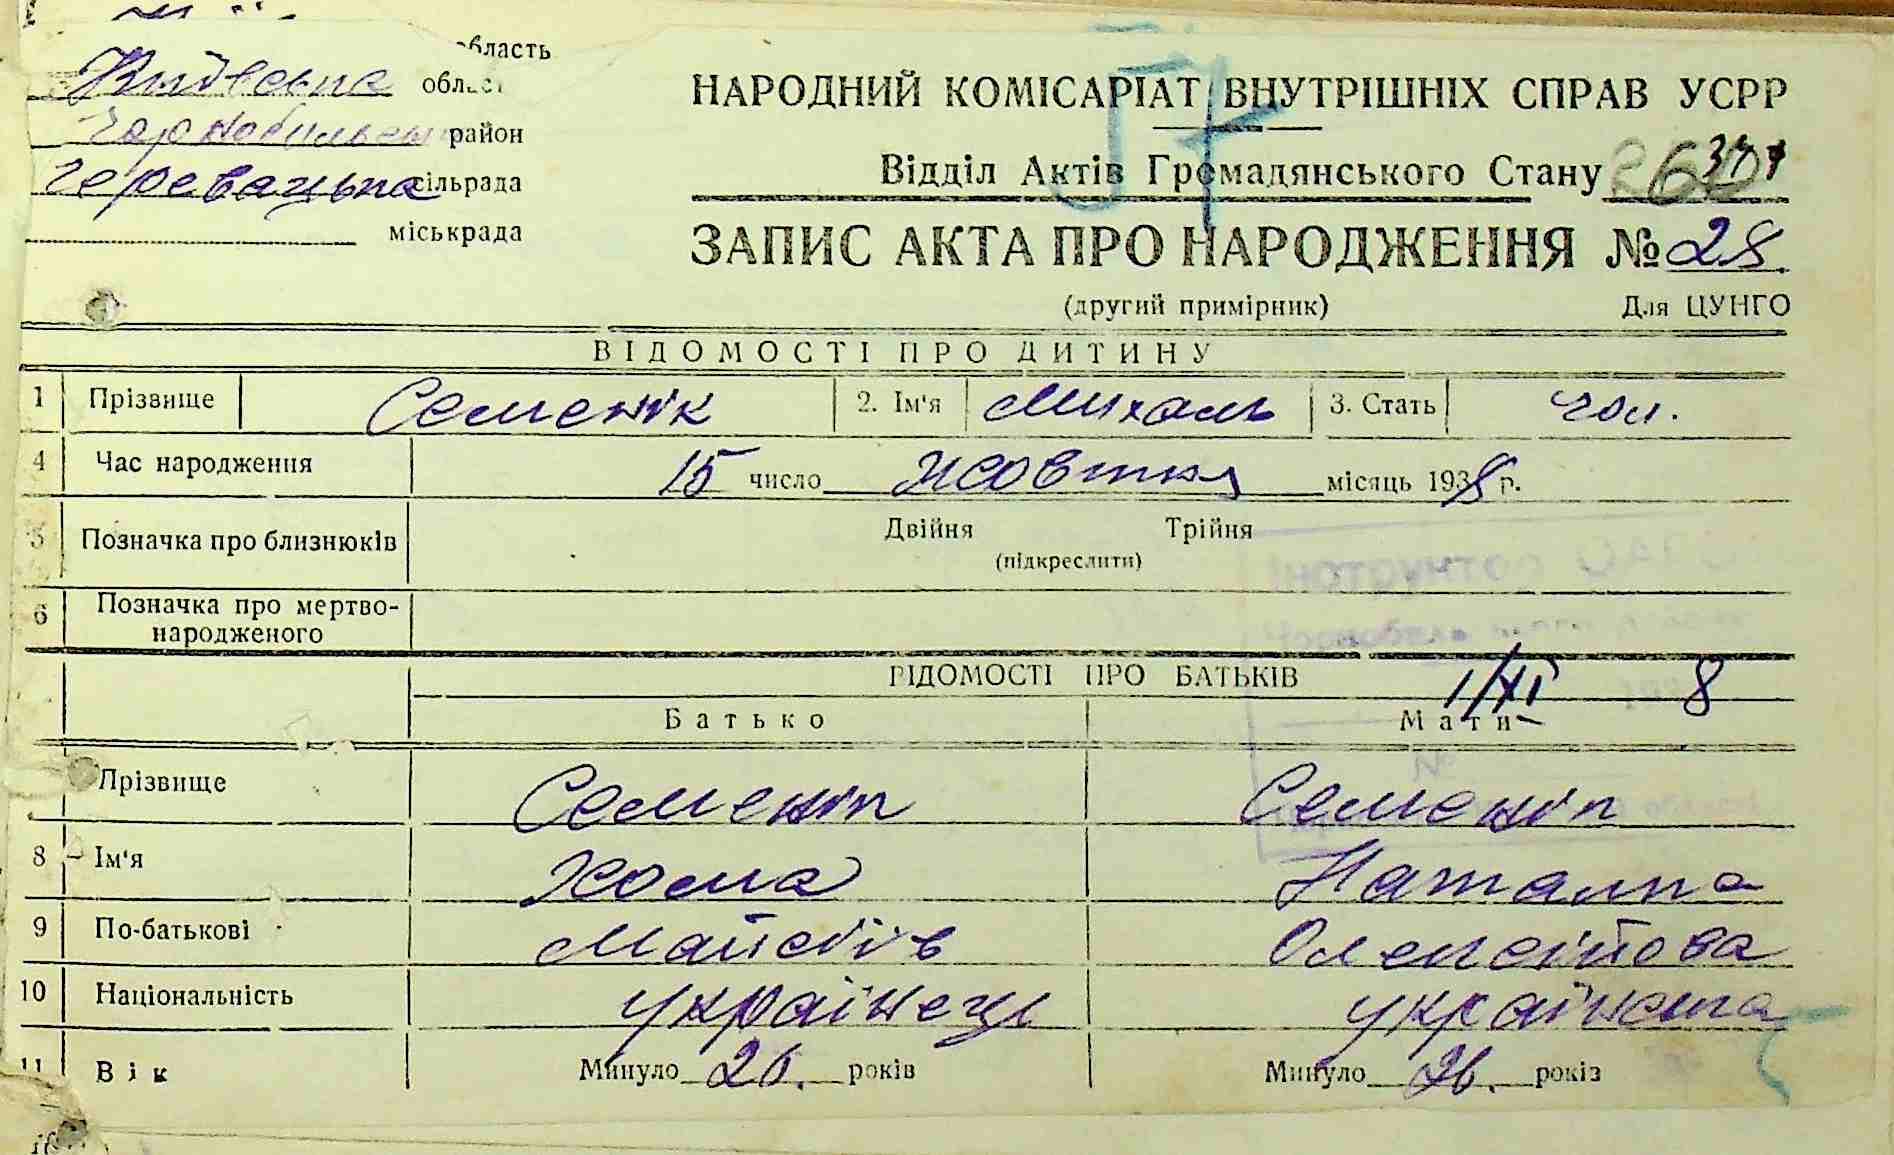 область
Київська област
Чорнобильськ район
Черевацька сільрада
міськрада
НАРОДНИЙ КОМІСАРІАТ ВНУТРІШНІХ СПРАВ УСРР
Відділ Актів Громадянського Стану
ЗАПИС АКТА ПРО НАРОДЖЕННЯ № 28.
(другий примірник) Для ЦУНГО
ВІДОМОСТІ ПРО ДИТИНУ
1 Прізвище Семенік 2. Ім'я Михаль 3. Стать чол.
4 Час народження 15 число жовтня місяць 1938 р.
5 Позначка про близнюків Двійня Трійня
(підкреслити)
6 Позначка про мертво-
народженого
ВІДОМОСТІ ПРО БАТЬКІВ 1/XI 8
Батько Мати
Прізвище Семенік Семенік
8 Ім'я Хома Наталка
9 По-батькові Олексійова
10 Національність українець українка
11 Вік Минуло 26. років Минуло 26. років